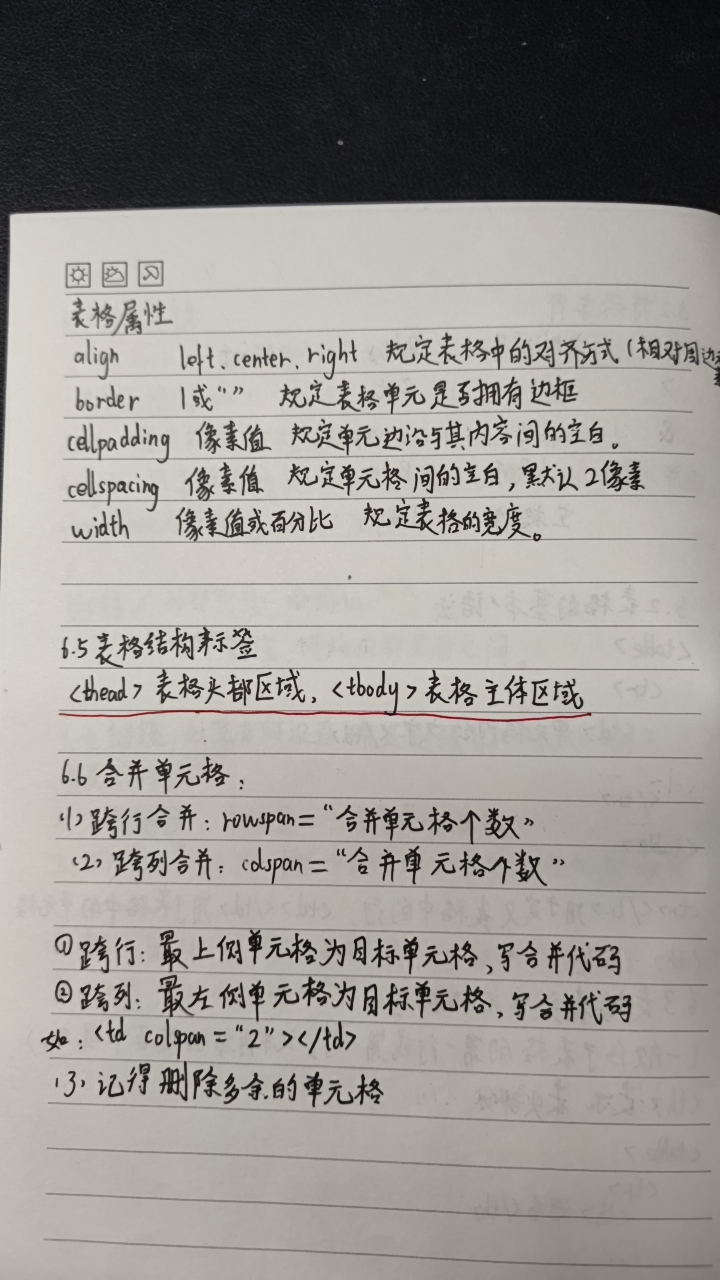 表格属性
align left、center、right 规定表格中的对齐方式(相对周边元素
border 1或“” 规定表格单元是否拥有边框
cellpadding 像素值 规定单元边沿与其内容间的空白。
cellspacing 像素值 规定单元格间的空白,默认2像素
width 像素值或百分比 规定表格的宽度。
6.5 表格结构标签
<thead> 表格头部区域, <tbody> 表格主体区域
6.6 合并单元格:
(1) 跨行合并: rowspan=“合并单元格个数”
(2) 跨列合并: colspan=“合并单元格个数”
①跨行: 最上侧单元格为目标单元格、写合并代码
②跨列: 最左侧单元格为目标单元格,写合并代码
如: <td colspan="2"></td>
(3) 记得删除多余的单元格